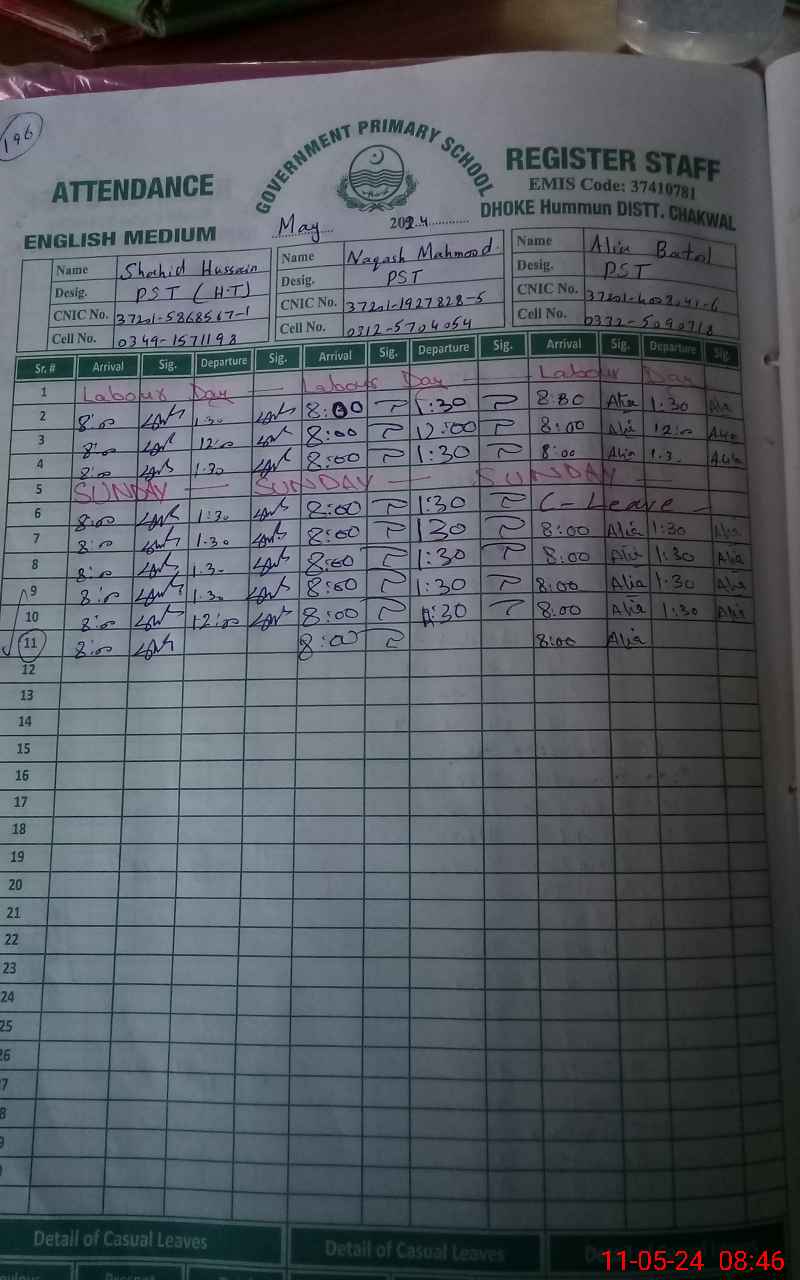 196
GOVERNMENT PRIMARY SCHOOL
ATTENDANCE
REGISTER STAFF
EMIS Code: 37410781
ENGLISH MEDIUM
May 2024
DHOKE Hummun DISTT. CHAKWAL
Name Shahid Hussain Name Naqash Mahmood Name Alia Batol
Desig. PST (H.T) Desig. PST Desig. PST
CNIC No. 37201-5868567-1 CNIC No. 37201-1927828-5 CNIC No.
Cell No. 0349-1571198 Cell No. 0312-5704054 Cell No.
Sr. # Arrival Sig. Departure Sig. Arrival Sig. Departure Sig. Arrival Sig. Departure Sig.
1 Labour Day — Labour Day — Labour Day
2 8:00 1:30 8:00 1:30 8:00 Alia 1:30 Alia
3 8:00 12:00 8:00 12:00 8:00 Alia 12:00 Alia
4 8:00 1:30 8:00 1:30 8:00 Alia 1:3 Alia
5 SUNDAY — SUNDAY — SUNDAY —
6 8:00 1:30 8:00 1:30 C-Leave -
7 8:00 1:30 8:00 130 8:00 Alia 1:30 Alia
8 8:00 1:30 8:00 1:30 8:00 Alia 1:30 Alia
9 8:00 1:30 8:00 1:30 8:00 Alia 1:30 Alia
10 8:00 12:00 8:00 :30 8:00 Alia 1:30 Alia
11 8:00 8:00 8:00 Alia
12
13
14
15
16
17
18
19
20
21
22
23
24
25
26
7
8
9
Detail of Casual Leaves Detail of Casual Leaves Detail of Casual Leaves
11-05-24 08:46